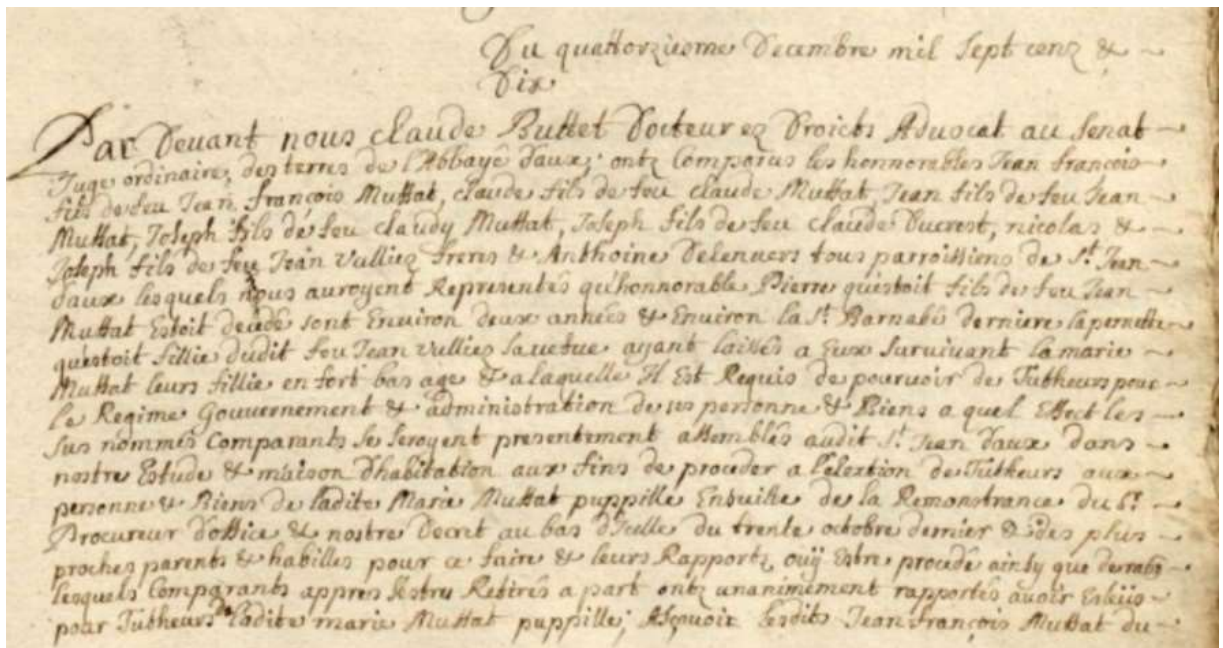 Du quattorziesme Decembre mil sept cenz &
Dix
Par Devant nous claude Buttet Docteur ez Droicts Advocat au senat
Juge ordinaire, des terres de l'Abbaye d'aux, ontz Comparus les honnorables Jean françois
fils de feu Jean françois Muffat, claude fils de feu claude Muffat, Jean fils de feu Jean
Muffat, Joseph fils de feu claudy Muffat, Joseph fils de feu claude Ducrest, nicolas &
Joseph fils de feu Jean vulliez freres & Anthoine Delenvers tous parroissiens de St. Jean
d'aux lesquels nous auroyent Representés qu'honnorable Pierre questoit fils de feu Jean
Muffat Estoit decedé sont Environ deux années & Environ la St. Barnabés derniere la pernette
questoit fillie dudit feu Jean vulliez sa vefve ayant laissés a Eux survivant la marie
Muffat leurs fillie en fort bas age & a laquelle Il Est Requis de pourvoir de Tutheurs pour
le Regime Gouvernement & administration de ses personne & Biens a quel Effect les
sus nommés Comparants se seroyent presentement assemblés audit St. Jean d'aux dans
nostre Estude & maison d'habitation aux fins de proceder a l'elextion de Tutheurs aux
personne & Biens de ladite Marie Muffat puppille Ensuitte de la Remonstrance du Sr.
Procureur d'office & nostre Decret au bas d'Icelle du trente octobre dernier & des plus
proches parents & habilles pour ce faire & leurs Rapportz ouÿ Estre procedé ainsy que de
lesquels Comparants appres s'estres Retirés a part ontz unanimement rapportés avoir Esleüs
pour Tutheurs de ladite marie Muffat puppille, Asçavoir Lesdits Jean françois Muffat du